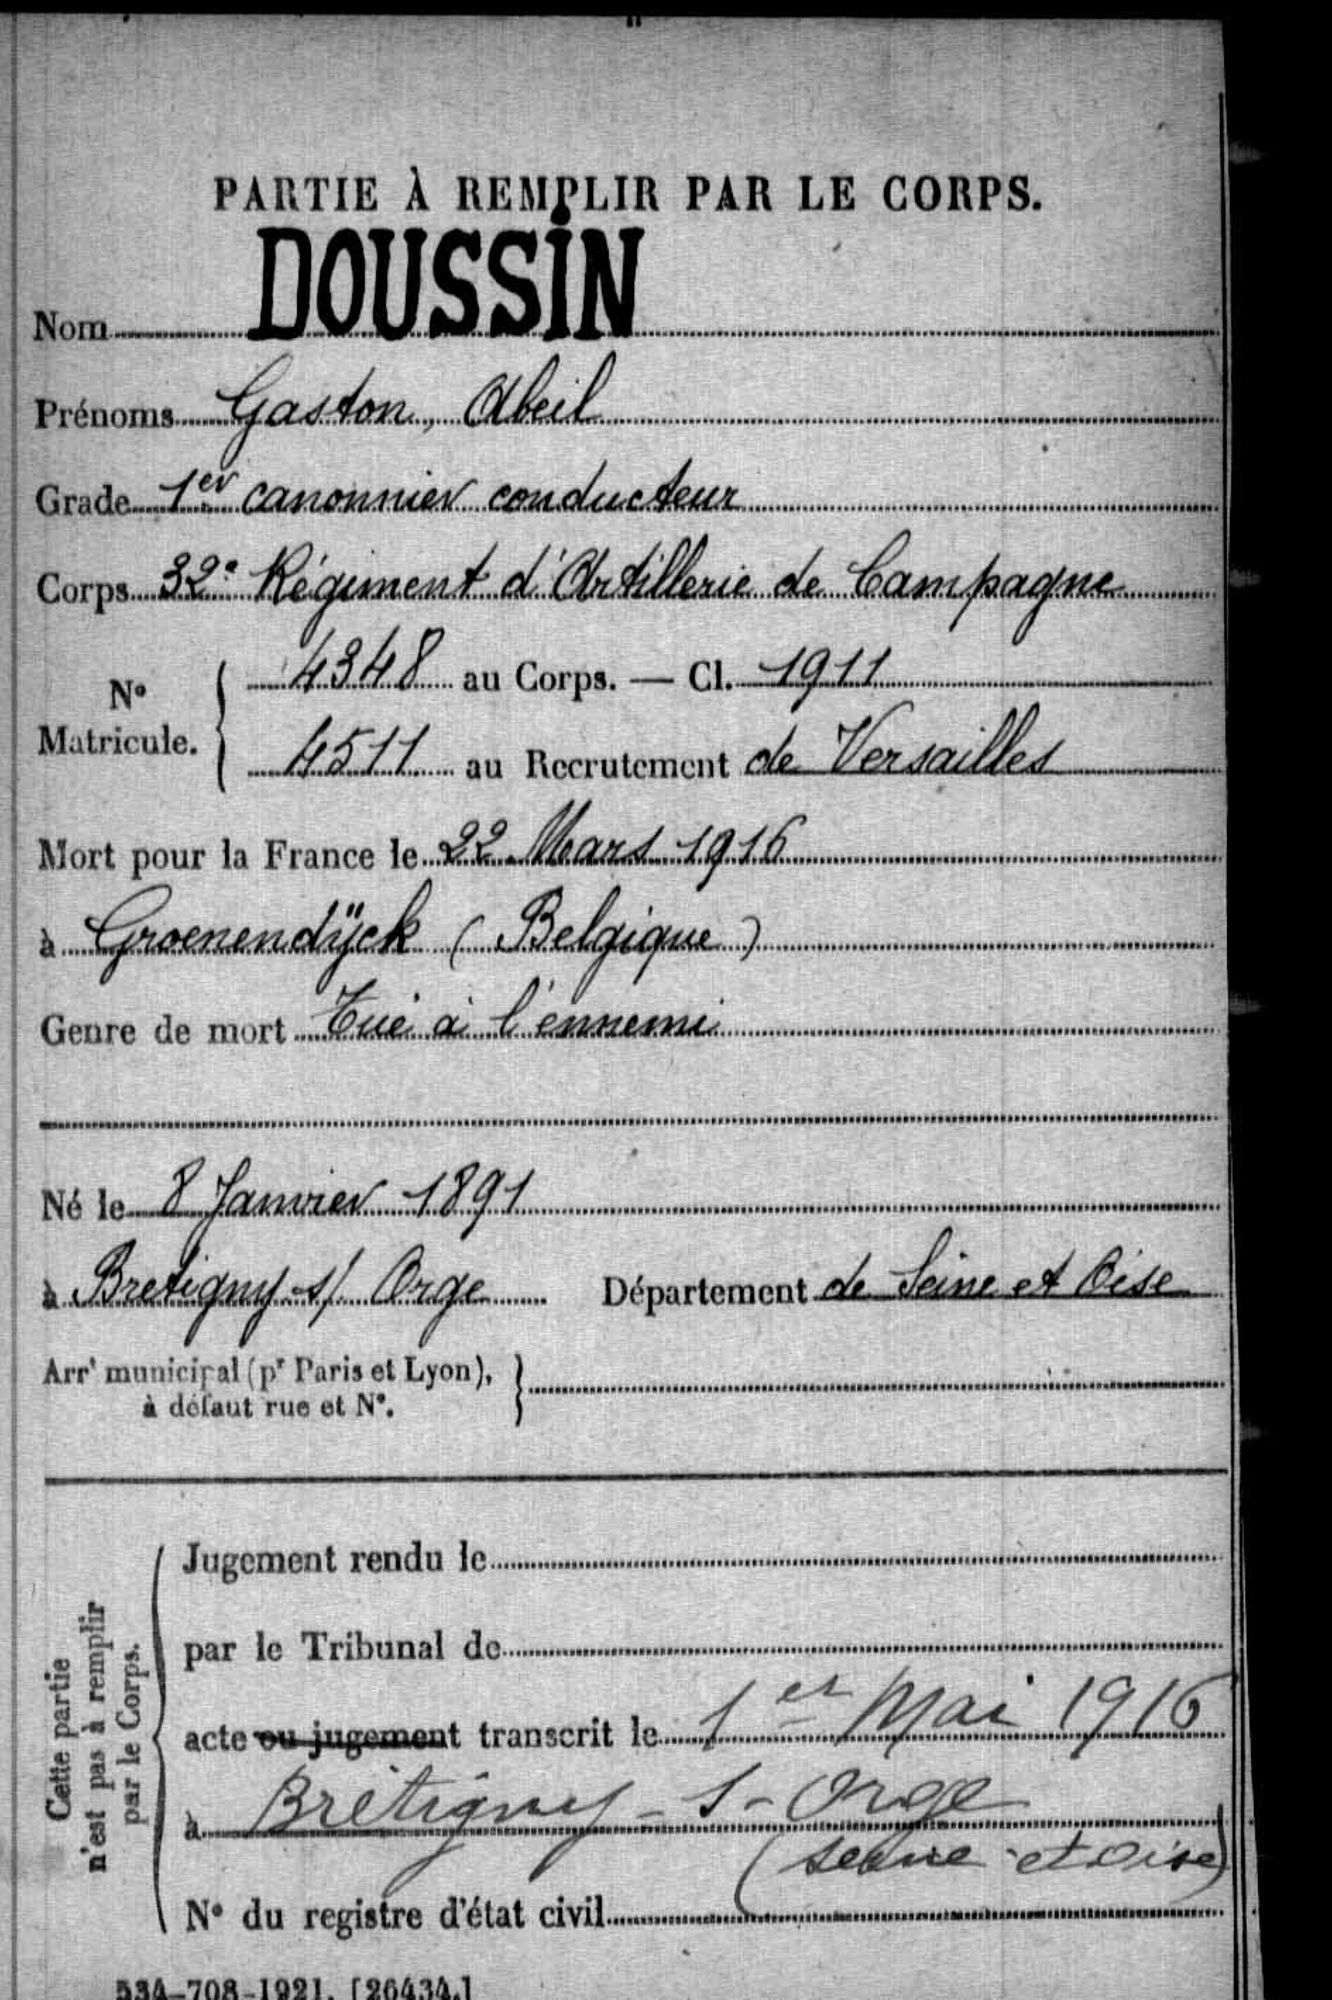 PARTIE À REMPLIR PAR LE CORPS.
Nom DOUSSIN
Prénoms Gaston, Abeil
Grade 1er canonnier conducteur
Corps 32e Régiment d'Artillerie de Campagne
No Matricule. { 4348 au Corps. — Cl. 1911
4511 au Recrutement de Versailles
Mort pour la France le 22 Mars 1916
à Groenendÿck (Belgique)
Genre de mort Tué à l'ennemi
Né le 8 Janvier 1891
à Bretigny s/ Orge Département de Seine et Oise
Arrt municipal (pr Paris et Lyon),
à défaut rue et No. }
Cette partie
n'est pas à remplir
par le Corps.
Jugement rendu le
par le Tribunal de
acte ou jugement transcrit le 1er Mai 1916
à Brétigny - s - Orge
(seine et oise)
No du registre d'état civil
534-708-1921. [26434.]